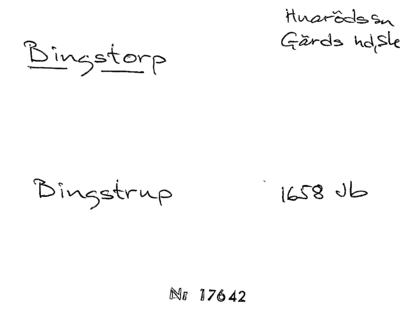 Huarödssn
Bingstorp
Gärds hd, Sk
Bingstrup
1658 Jb
Nr 17642